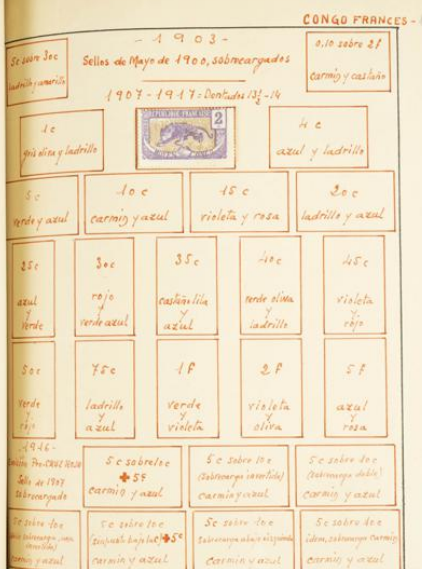 CONGO FRANCES -
- 1903 -
5c sobre 30c
ladrillo y amarillo
Sellos de Mayo de 1900, sobrecargados
0,10 sobre 2f
carmín y castaño
1907 - 1917 = Dentados 13½ - 14
1c
gris oliva y ladrillo
REPUBLIQUE FRANÇAISE
2
4c
azul y ladrillo
5c
verde y azul
10c
carmín y azul
15c
violeta y rosa
20c
ladrillo y azul
25c
azul
y
verde
30c
rojo
y
verde azul
35c
castaño lila
y
azul
40c
verde oliva
y
ladrillo
45c
violeta
y
rojo
50c
verde
y
rojo
75c
ladrillo
y
azul
1f
verde
y
violeta
2f
violeta
y
oliva
5f
azul
y
rosa
- 1916 -
Emisión Pro-CRUZ ROJA
Sello de 1907
sobrecargado
5c sobre 10c
+ 5c
carmín y azul
5c sobre 10c
(sobrecarga invertida)
carmín y azul
5c sobre 10c
(sobrecarga doble)
carmín y azul
5c sobre 10c
sobrecarga, una
invertida)
carmín y azul
5c sobre 10c
bajo la c) + 5c
carmín y azul
5c sobre 10c
sobrecarga abajo izquierda
carmín y azul
5c sobre 10c
idem, sobrecarga carmín
carmín y azul